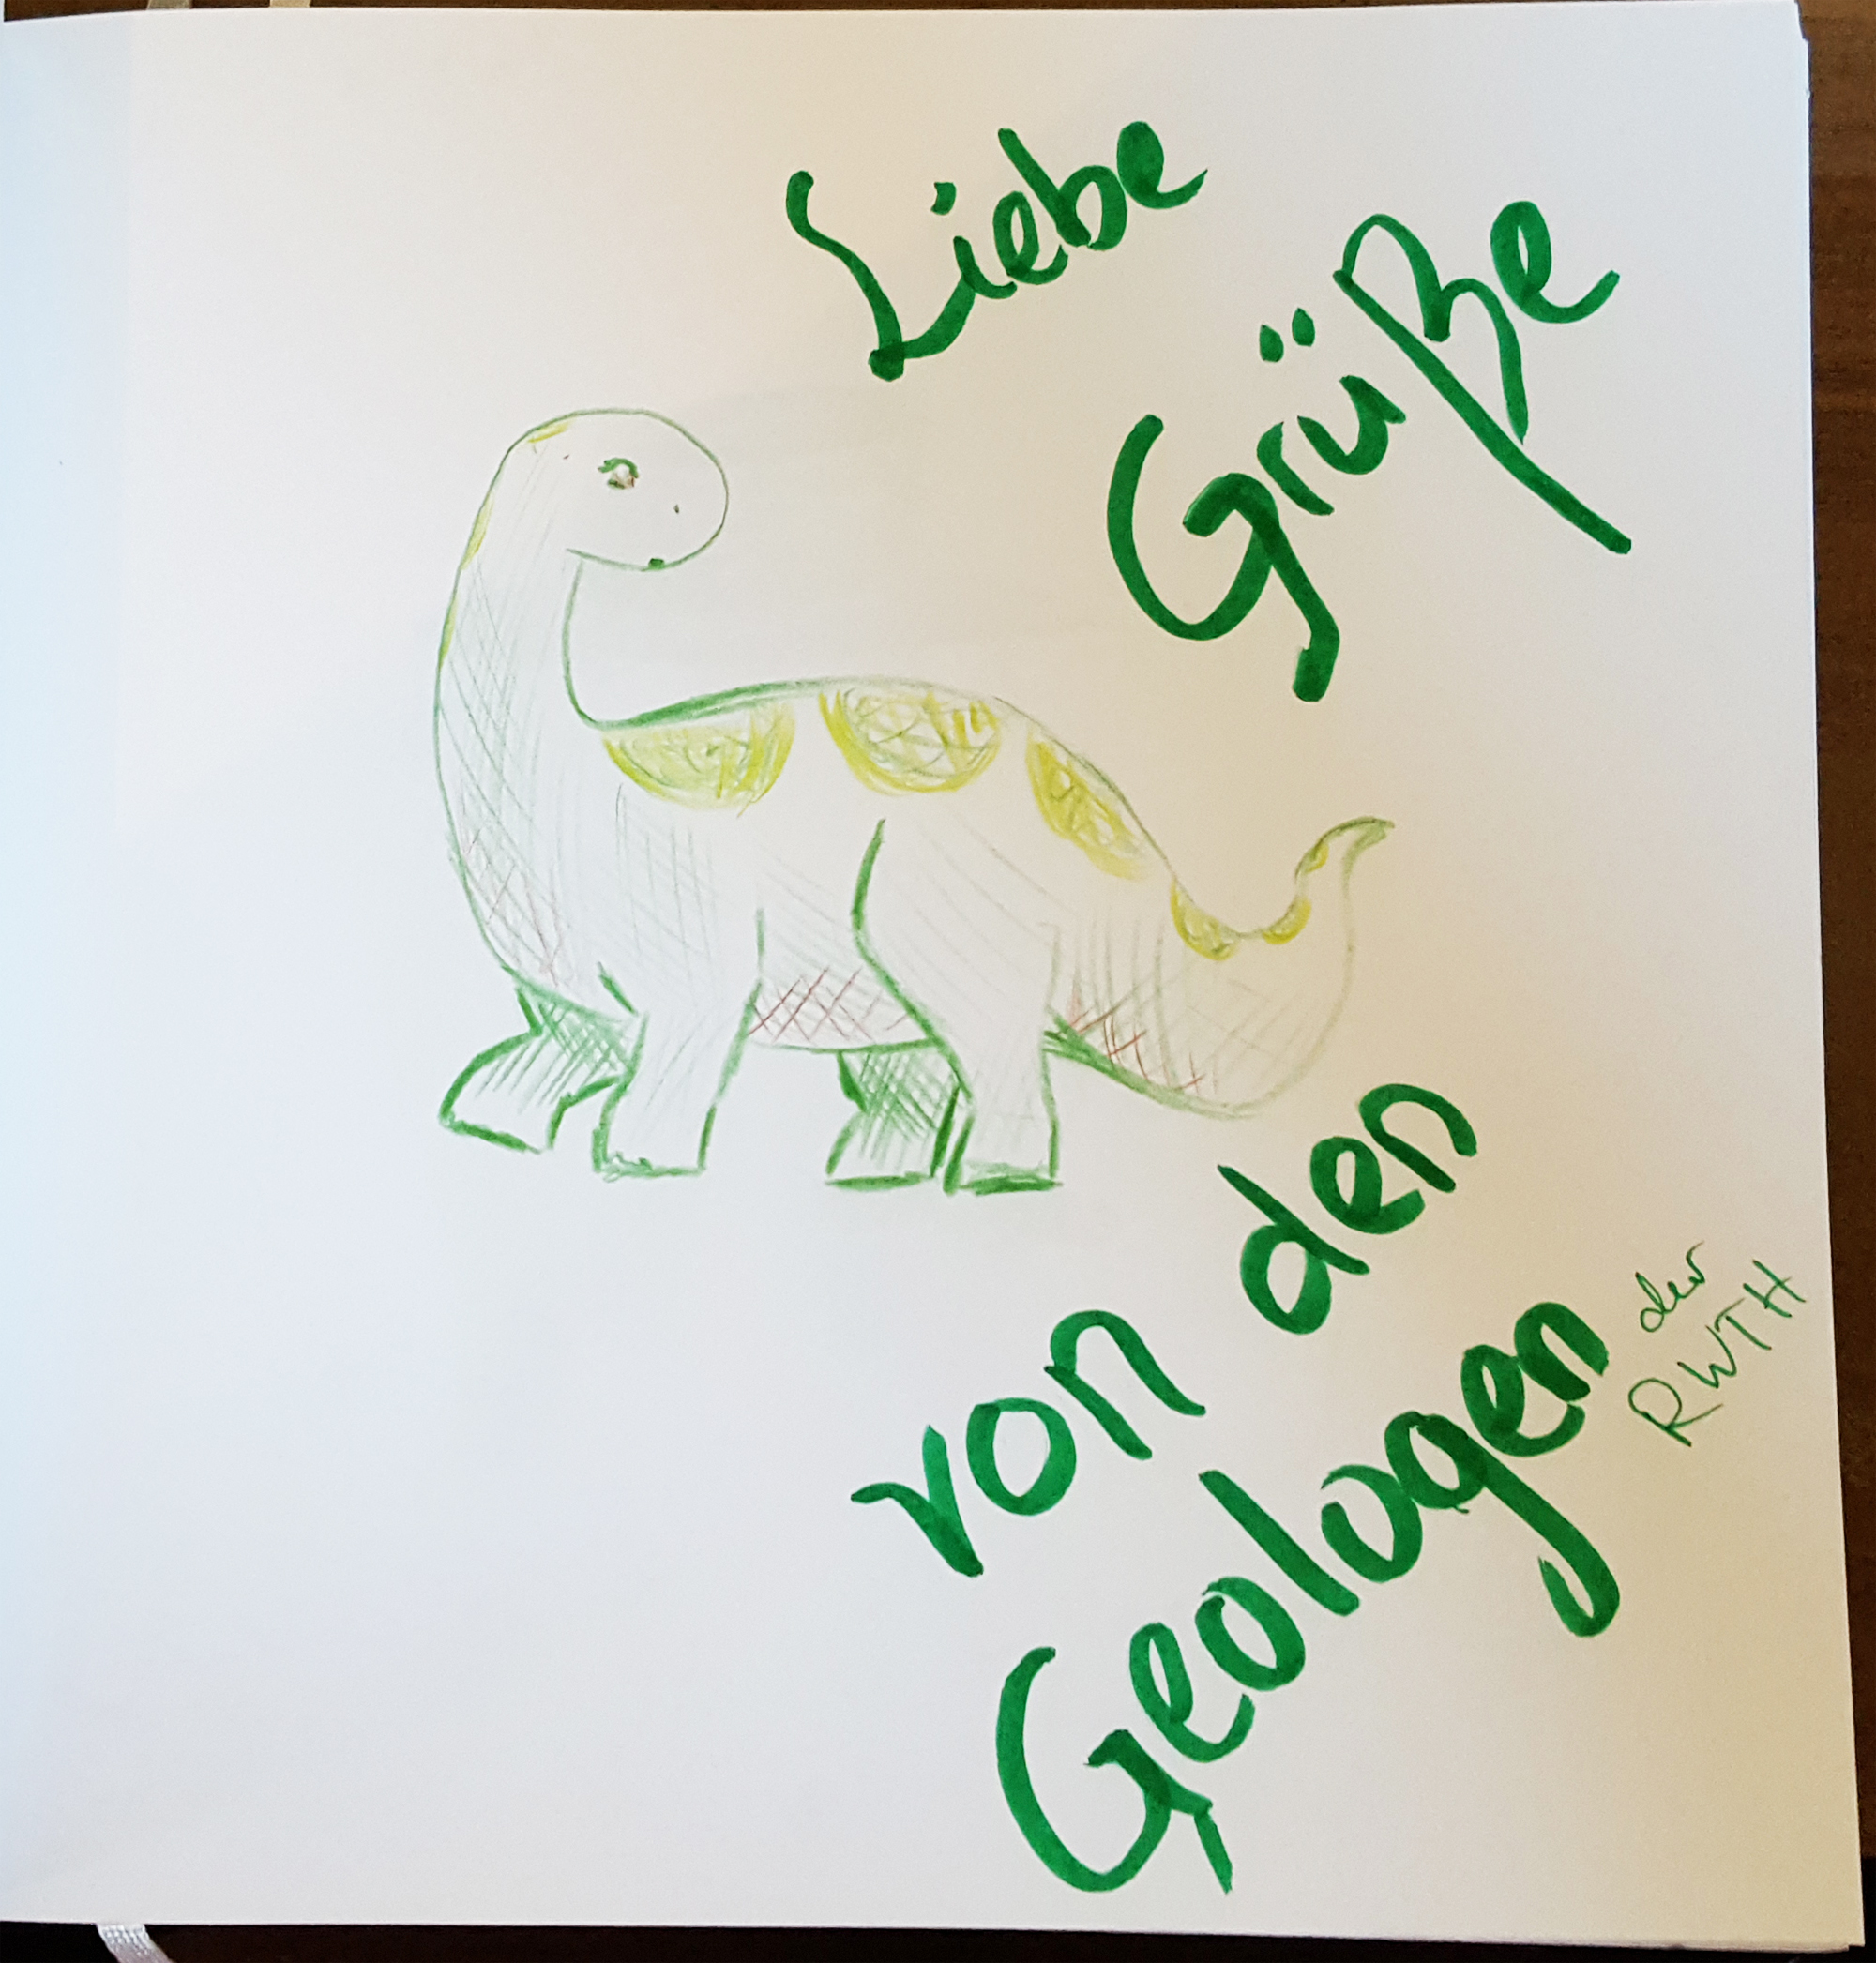 Liebe
Grüße
von den
Geologen
der
RWTH